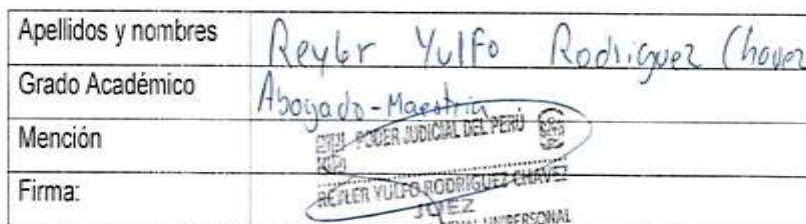 Apellidos y nombres Reyler Yulfo Rodriguez Chavez
Grado Académico Abogado - Maestria
Mención
PODER JUDICIAL DEL PERÚ
REYLER YULFO RODRIGUEZ CHAVEZ
Firma:
JUEZ
UNIPERSONAL